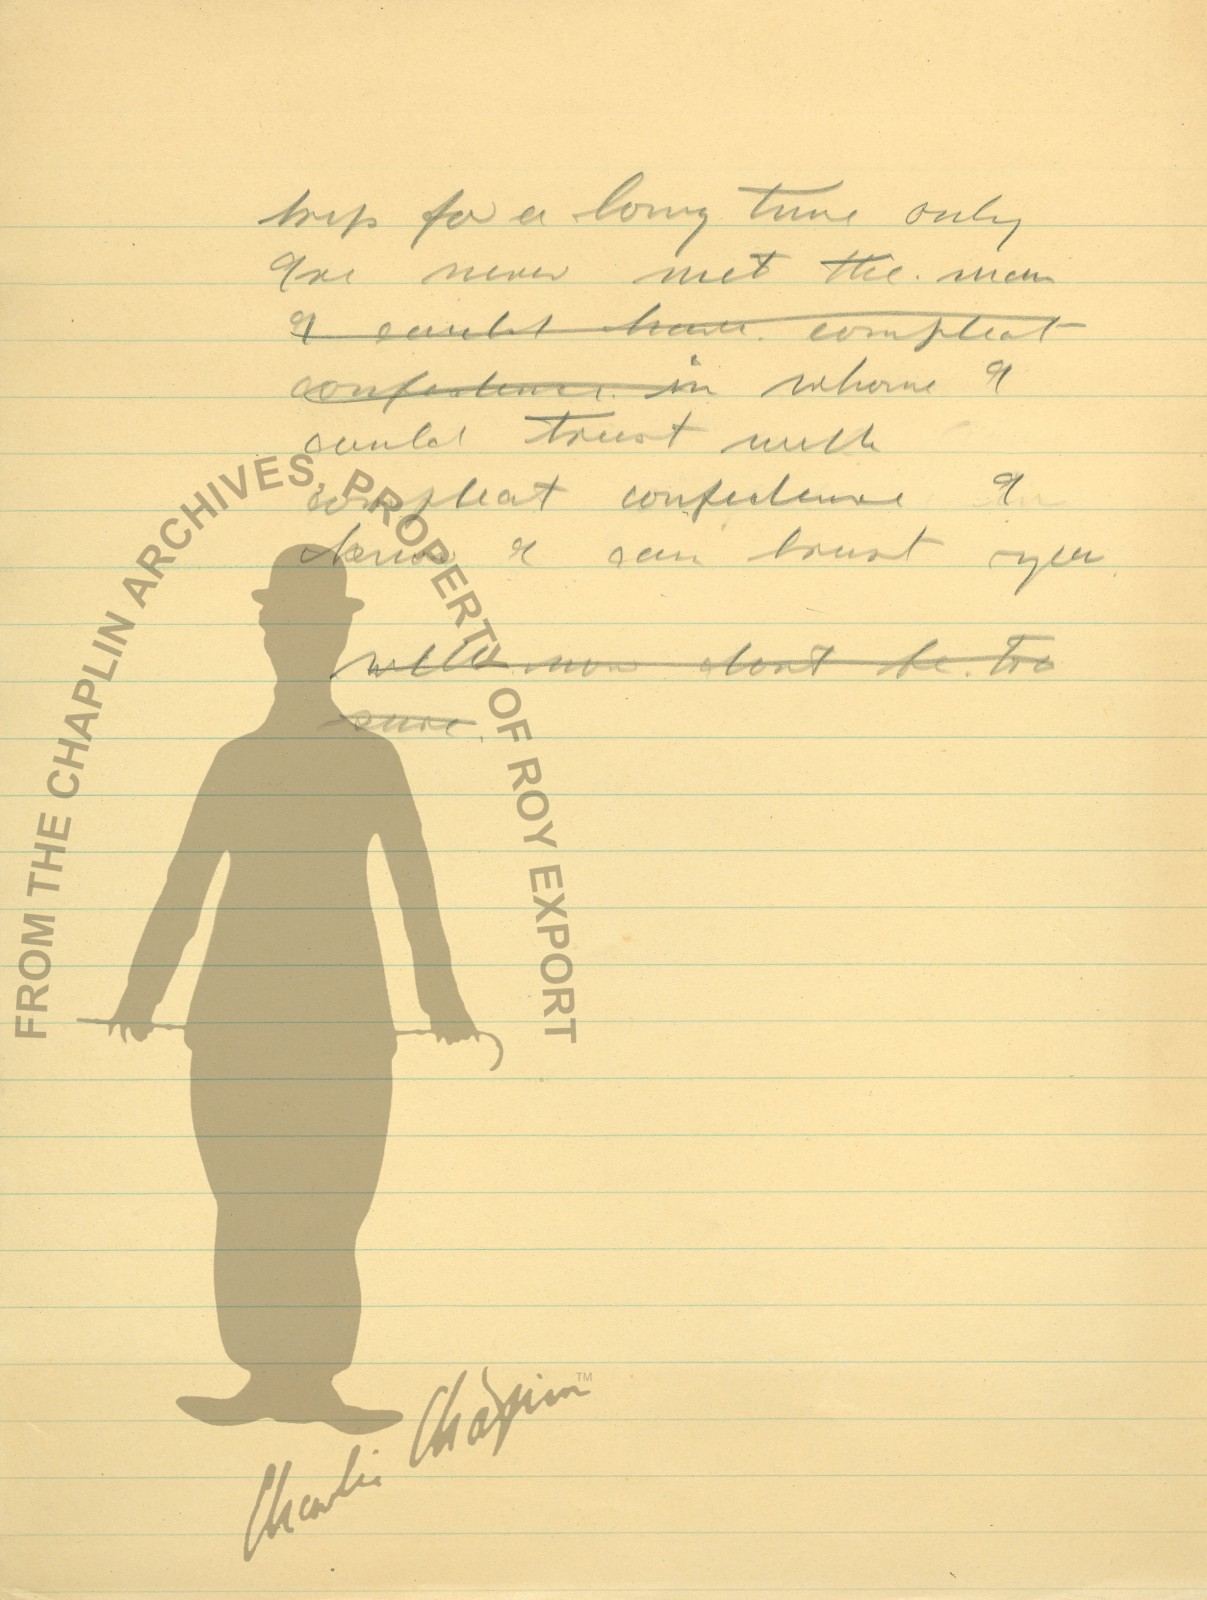 trip for a long time only
I've never met the man
I could have compleat
confedence in whome I
could trust with
compleat confedence I
know I can trust you
well now dont be too
sure.
FROM THE CHAPLIN ARCHIVES, PROPERTY OF ROY EXPORT
Charlie Chaplin™